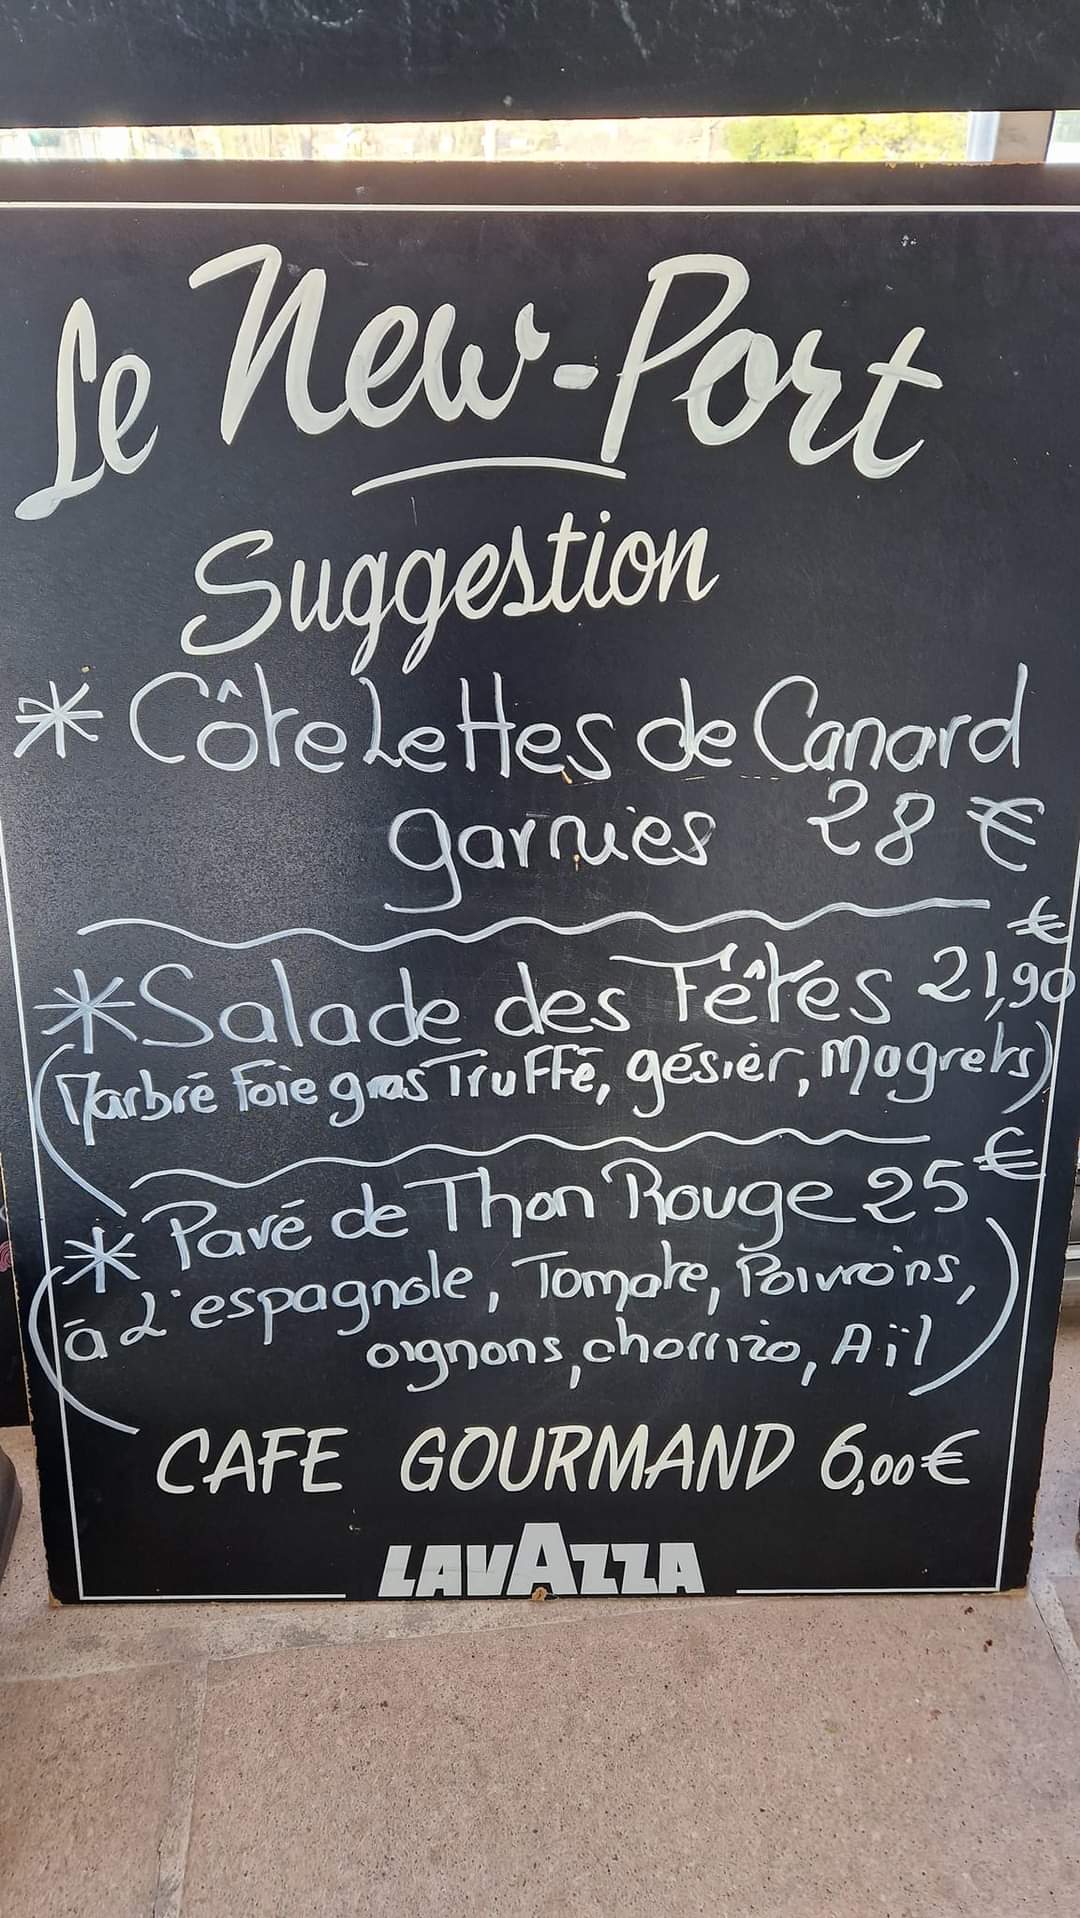 Le New-Port
Suggestion
* Côtelettes de Canard
garnies 28 €
* Salade des Fêtes 21,90 €
(Marbré Foie gras Truffé, gésier, Magrets)
* Pavé de Thon Rouge 25 €
(à L'espagnole, Tomate, Poivrons,
oignons, chorrizo, Aïl)
CAFE GOURMAND 6,00 €
LAVAZZA